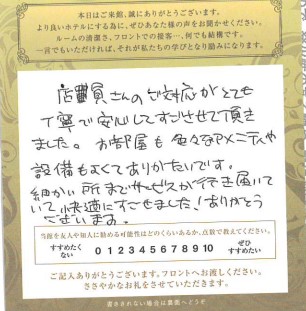 本日はご来館、誠にありがとうございます。
より良いホテルにする為に、ぜひあなた様の声をお聞かせください。
ルームの清潔さ、フロントでの接客…、何でも結構です。
一言でもいただければ、それが私たちの学びとなり励みになります。
店員さんのご対応がとても
丁寧で安心してすごさせて頂き
ました。お部屋も色々なアメニティや
設備もよくてありがたいです。
細かい所までサービスが行き届いて
いて快適にすごせました、ありがとう
ございます。
当館を友人や知人に勧める可能性はどのくらいあるか、点数で教えてください。
すすめたくない 0 1 2 3 4 5 6 7 8 9 10 ぜひすすめたい
ご記入ありがとうございます。フロントへお渡しください。
ささやかなお礼をさせていただきます。
書ききれない場合は裏面へどうぞ